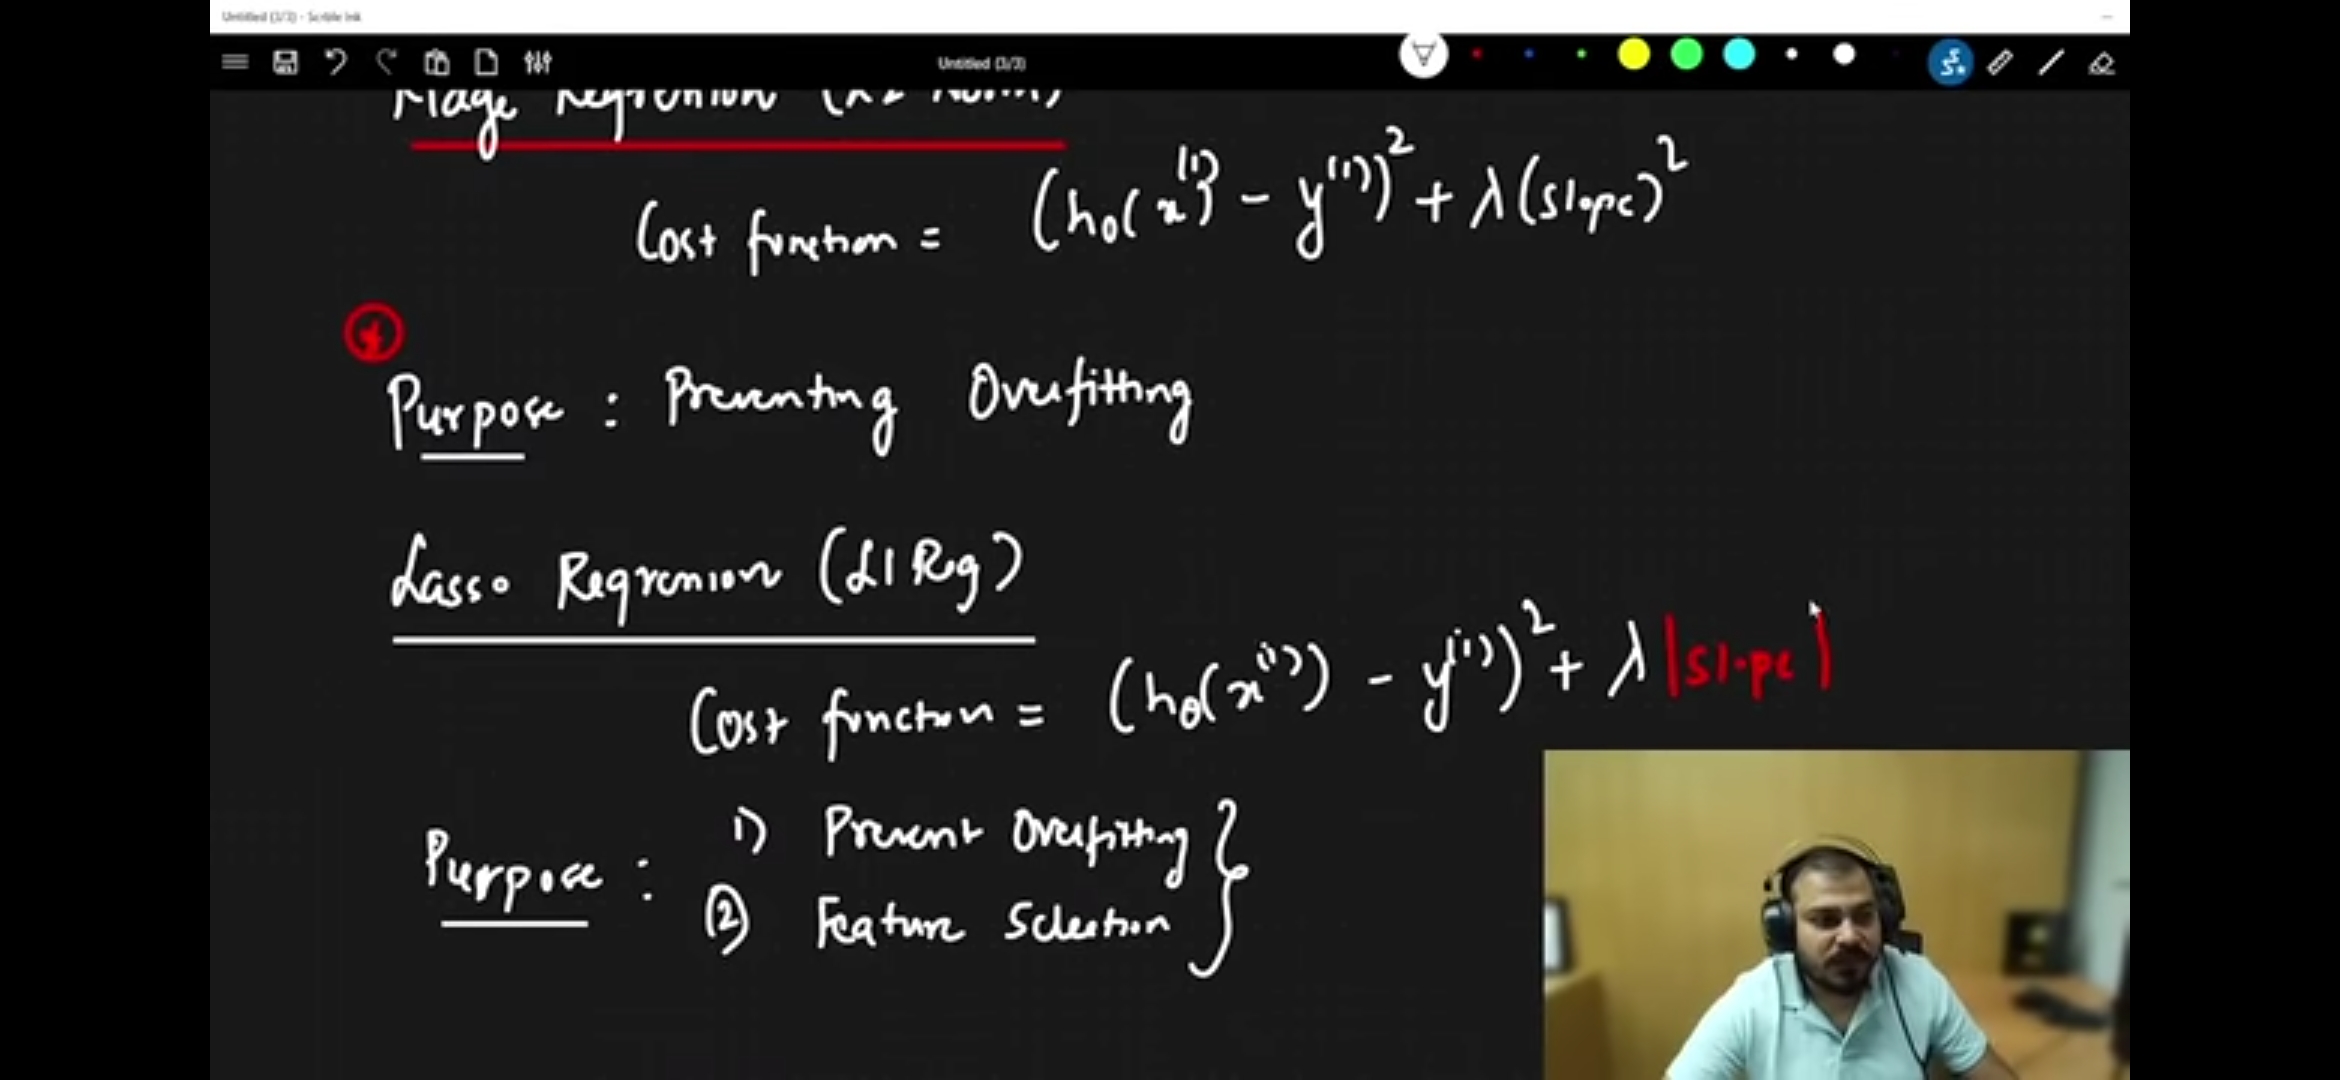 Untitled (3/3) - Scrible Ink
Untitled (3/3)
Ridge Regression (L2 Norm)
Cost function = (hθ(x⁽ⁱ⁾) - y⁽ⁱ⁾)² + λ(slope)²
Purpose : Preventing Overfitting
Lasso Regression (L1 Reg)
Cost function = (hθ(x⁽ⁱ⁾) - y⁽ⁱ⁾)² + λ|slope|
1) Prevent Overfitting
Purpose :
② Feature Selection